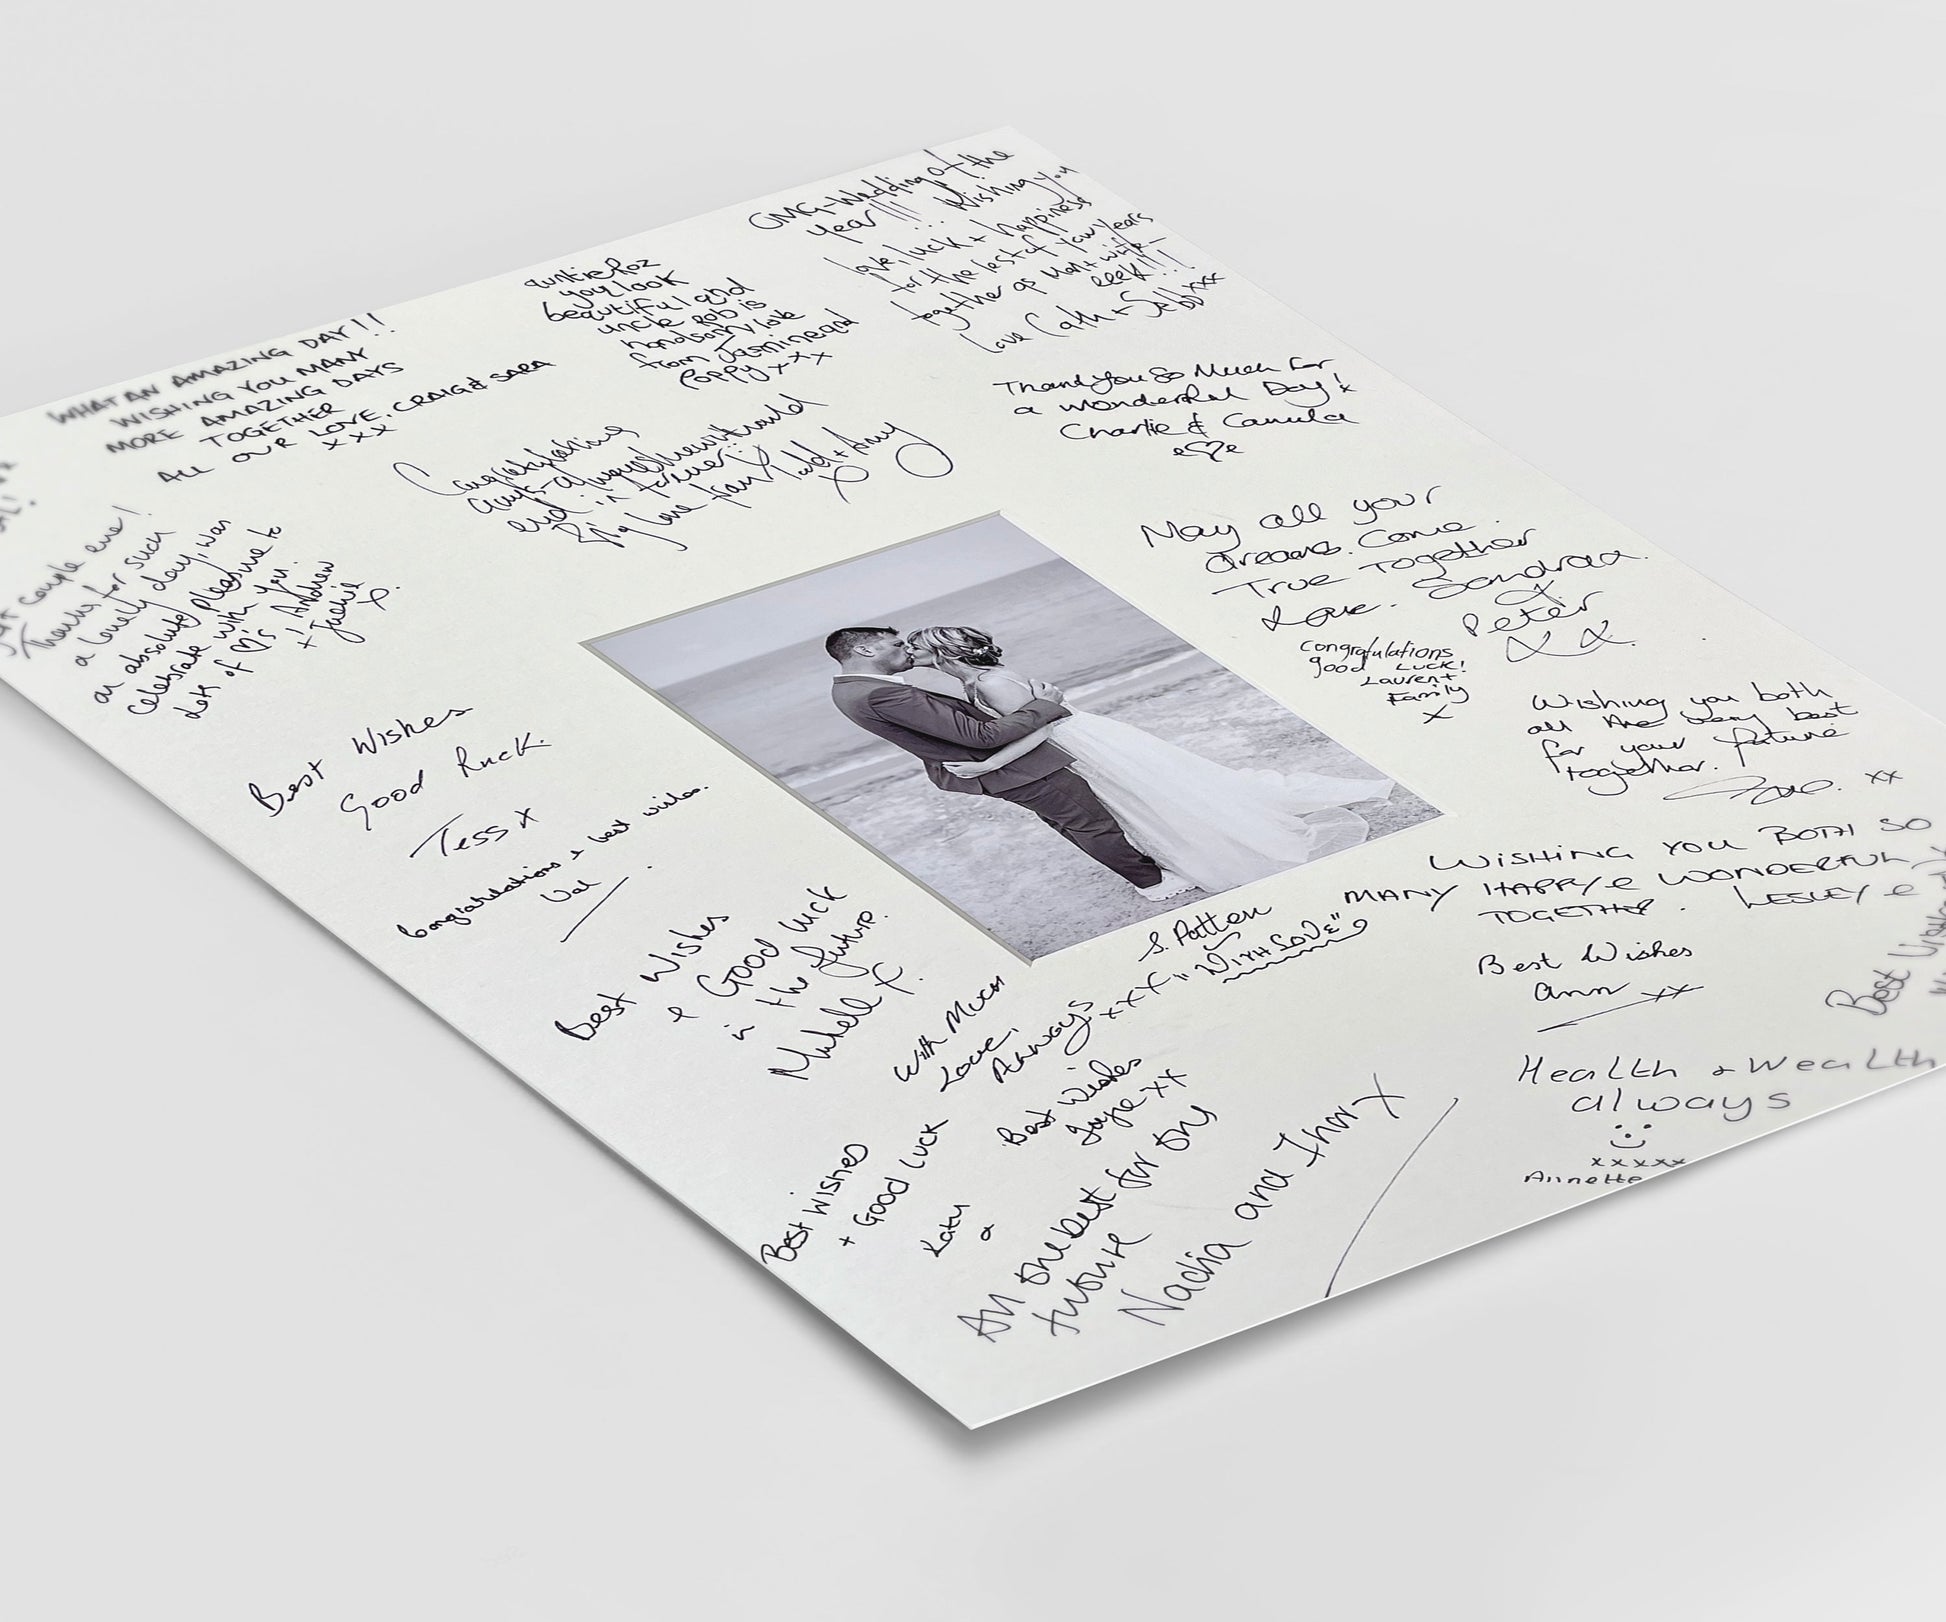 WHAT AN AMAZING DAY!!
WISHING YOU MANY
MORE AMAZING DAYS
TOGETHER
ALL OUR LOVE, CRAIG & SARA
xxx
auntie Roz
you look
beautiful and
uncle Rob is
handsom love
from Jasmine and
Poppy xxx
OMG-Wedding of the
year!!! Wishing you
love, luck + happiness
for the rest of your years
together as Man + wife-
eeek!!!
Love Cath + Sebb xxx
Thank you So Much for
a wonderful Day! x
Charlie & Camila
Congratulations
guys-
end in
Big love from Todd + Amy
x
May all your
dreams. Come.
True Together
Love. Sandraa.
x
Peter
X X.
Congratulations
good LUCK!
Laurent
Family
x
Wishing you both
all the very best
for your future
together.
xx
couple ever!
Thanks for such
a lovely day, was
an absolute pleasure to
celebrate with you.
Lots of ♡'s Andrew
+ Jackie
x.
Best Wishes
Good Luck.
Tess x
Congratulations & best wishes.
Val
Best Wishes
& Good luck
in the future.
Michelle x.
WISHING YOU BOTH SO
MANY HAPPY & WONDERFUL
TOGETHER. LESLEY &
S. Patten
xxx "WITH LOVE"
With Much
Love,
Always
Best Wishes
Ann xx
Best Vibes
Best Wishes
Joyce xx
Health + Wealth
always
xxxxx
Annette
Best Wishes
+ Good Luck
Katy
x
All the best for the
future
Nadia and Imm x